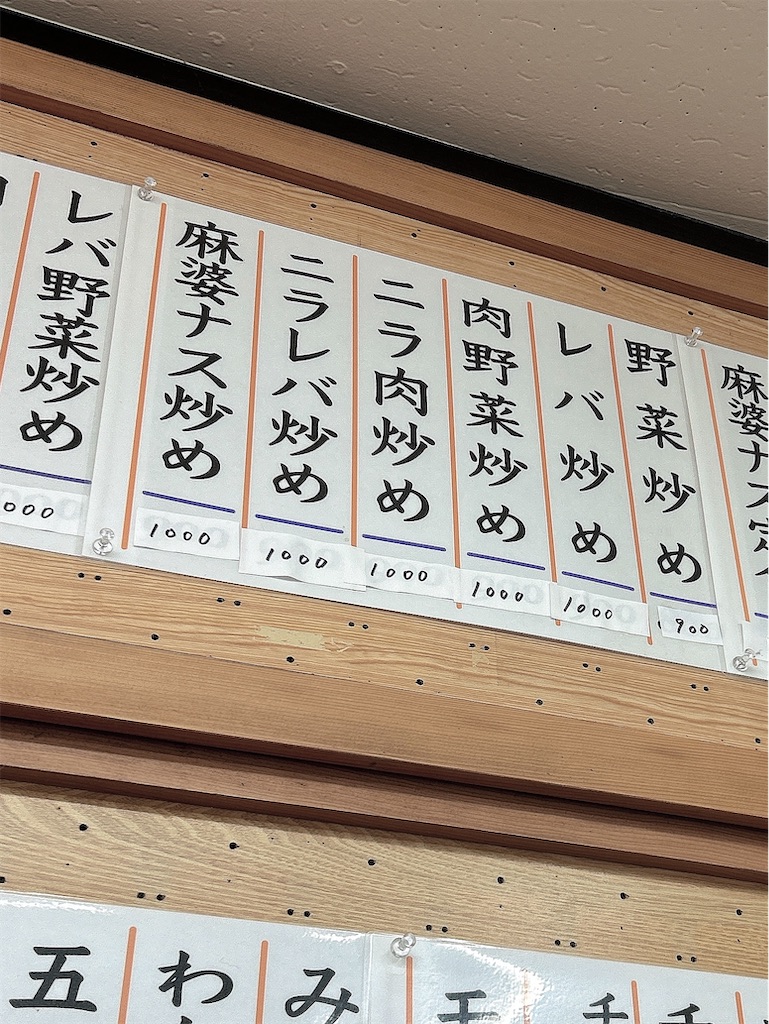 麻婆ナス定
野菜炒め
900
レバ炒め
1000
肉野菜炒め
1000
ニラ肉炒め
1000
ニラレバ炒め
1000
麻婆ナス炒め
1000
レバ野菜炒め
000
チ
チ
モ
み
わ
五